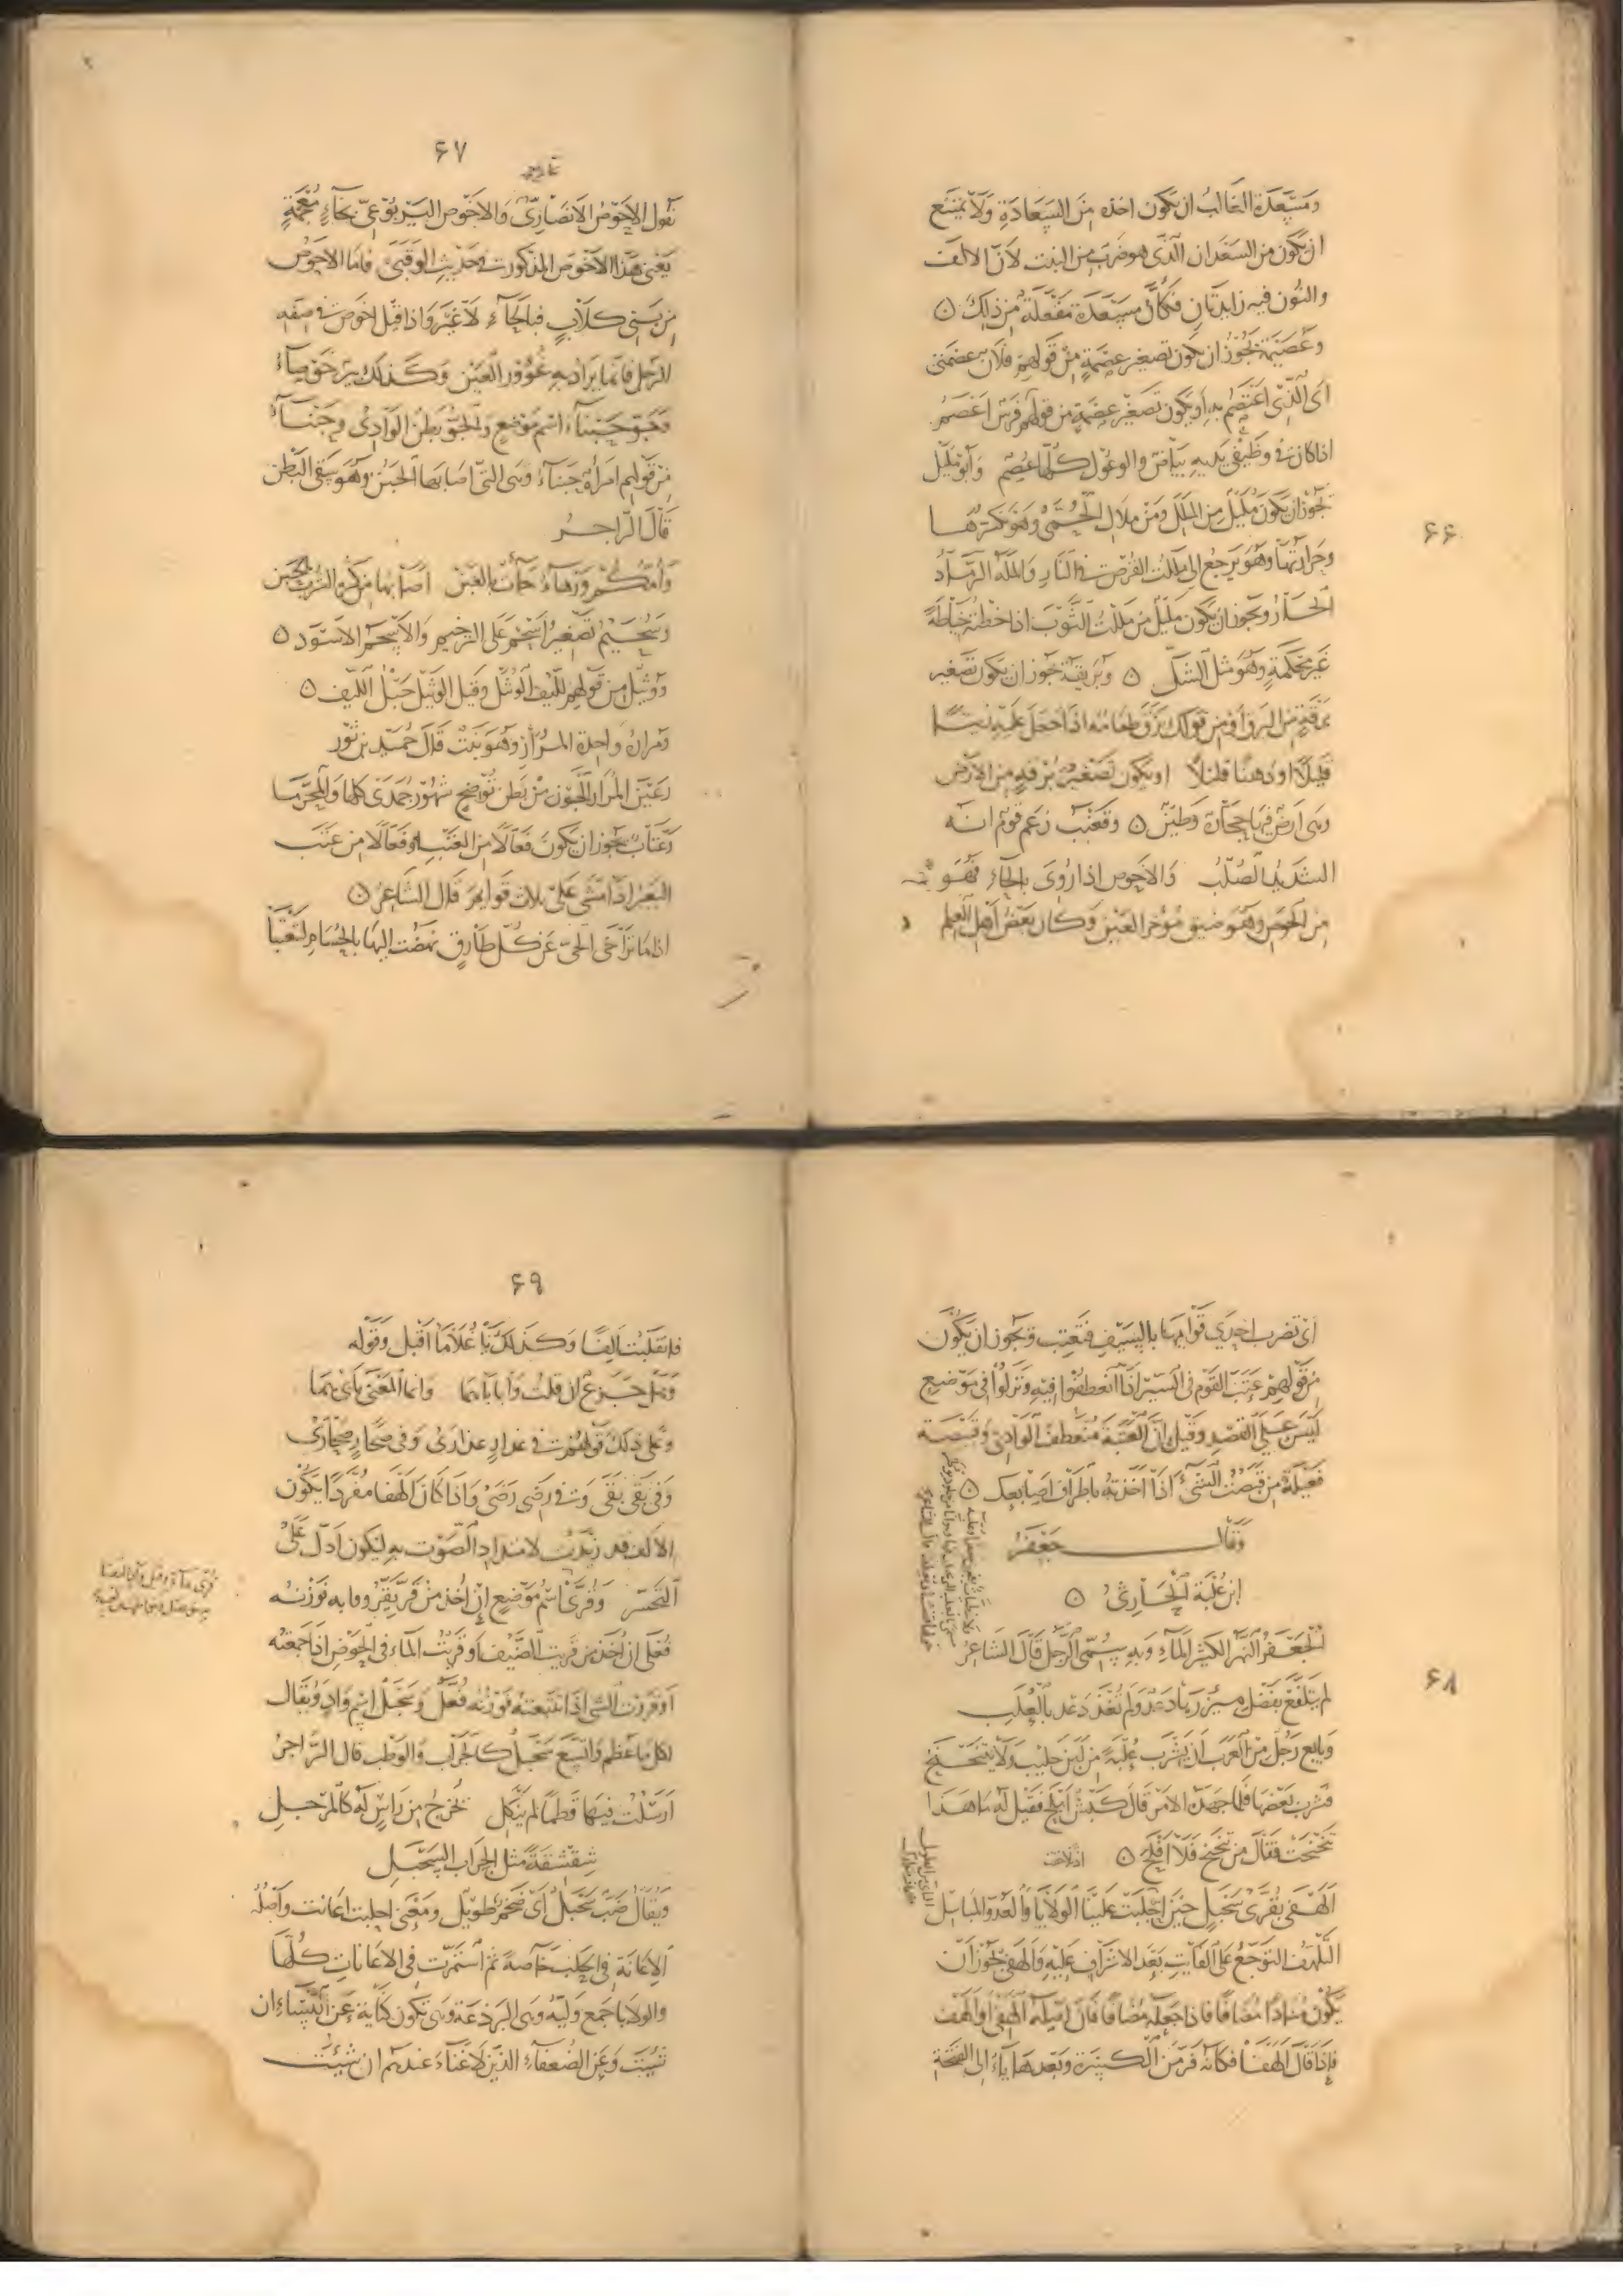 ومسعدة الغالب ان يكون اخذه من السعادة ولا يمتنع
ان يكون من السعدان الذي هو ضرب من النبت لان الالف
والنون فيه زايدتان فكان مسعدة مفعلة من ذلك ٥
وعصيمة يجوز ان يكون تصغير عصمة من قولهم فلان عصمتى
اى الذى اعتصم به او يكون تصغير عصمة من قولهم فرس اعصم
اذا كان فى وظيفى يديه بياض والوعول كلها عصم وابو مليل
يجوز ان يكون مليل من الملل ومن ملال الحمى وهو تكسرها
وحرارتها وهو يرجع الى مللت القرص فى النار والملة الرماد
الحار ويجوز ان يكون مليل من مللت الثوب اذا خطته خياطة
غير محكمة وهو مثل الشل ٥ وبريقة يجوز ان يكون تصغير
برقة من البرق او من قولك برق طعامه اذا جعل عليه زيتا
قليلا او دهنا قليلا او يكون تصغير برقة من الارض
وهى ارض فيها حجارة وطين ٥ وقعنب زعم قوم انه
الشديد الصلب والاحوص اذا روى بالحاء فهو
من الحوص وهو ضيق مؤخر العين وكان بعض اهل العلم
۶۶
۶۷
يقول الاحوص الانصارى والاخوص اليربوعى بخاء معجمة
يعنى هذا الاخوص المذكور فى حديث الوقبى فاما الاحوص
من بنى كلاب فبالحاء لا غير واذا قيل اخوص فى صفة
الرجل فانما يراد به غوور العين وكذلك بير خوصاء
وجو حبناء اسم موضع والجو بطن الوادى وحبناء
من قولهم امراة حبناء وهى التى اصابها الحبن وهو سقى البطن
قال الراجز
وامكم ورهاء حمات العين اصابها من كثرة الشرب الحبن
وسحيم تصغير اسحم على الترخيم والاسحم الاسود ٥
ووثيل من قولهم لليف الوثل وقيل الوثيل حبل الليف ٥
ومرارة واحدة المرار وهو نبت قال حميد بن ثور
رعين المرار الجون من بطن توضح شهور جمادى كلها والمحرما
وعتاب يجوز ان يكون فعالا من العتب او فعالا من عتب
البعير اذا مشى على ثلاث قوايم قال الشاعر ٥
اذا ما تراخى الحى عن كل طارق نهضت اليها بالحسام لتعتبا
اى تضرب احدى قوايمها بالسيف فتعتب ويجوز ان يكون
من قولهم عتب القوم فى السير اذا انعطفوا فيه ونزلوا فى موضع
ليس على القصد وقيل ان العتبة منعطف الوادى وقبيصة
فعيلة من قبصت الشىء اذا اخذته باطراف اصابعك ٥
وقال جعفر
ابن علبة الحارثى ٥
الجعفر النهر الكثير الماء وبه يسمى الرجل قال الشاعر
لم تتلفع بفضل ميزرها دعد ولم تغذ دعد بالعلب
وبايع رجل من العرب ان يشرب علبة من لبن حليب ولا يتنحنح
فشرب بعضها فلما جهده الامر قال كبش املح فقيل له ما هذا
تنحنحت فقال من تنحنح فلا افلح ٥
الهفى بقرى سحبل حين اجلبت علينا الولايا والعدو المباسل
التلهف التوجع على الفايت بعد الاشراف عليه والهفى يجوز ان
يكون منادا مضافا فاذا جعله مضافا فان اصله الهفى والهف
فاذا قال الهفا فكانه فر من الكسرة وبعدها ياء الى الفتحة
۶۸
۶۹
فانقلبت الفا وكذلك يا غلاما اقبل وقوله
وهل جزع ان قلت وا باباهما وانما المعنى بابى هما
وعلى ذلك قولهم فى عذار عذارى وفى صحار صحارى
وفى بقى بقى وفى رضى رضى واذا كان الهفا مفردا يكون
الالف قد زيدت لامتداد الصوت به ليكون ادل على
التحسر وقرى اسم موضع ان اخذ من قر يقر وما به فوزنه
فعلى ان اخذ من قريت الضيف او قريت الماء فى الحوض اذا جمعته
او قروت الشى اذا تتبعته فوزنه فعل وسحبل اسم واد ويقال
لكل ما عظم واتسع سحبل كالجراب والوطب قال الراجز
ارسلت فيها قطما لم يثكل تخرج من راس له كالمرجل
شقشقة مثل الجراب السحبل
ويقال ضب سحبل اى ضخم طويل ومعنى اجلبت اعانت واصله
الاعانة فى الحلب خاصة ثم استمرت فى الاعانات كلها
والولايا جمع ولية وهى البردعة وهى تكون كناية عن النساء ان
شيت وعن الضعفاء الذين لا غناء عندهم ان شيت